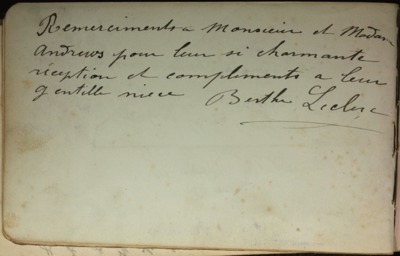 Remerciments a Monsieur et Madam
Andrews pour leur si charmante
réception et compliments a leur
gentille niece Berthe Leclerc